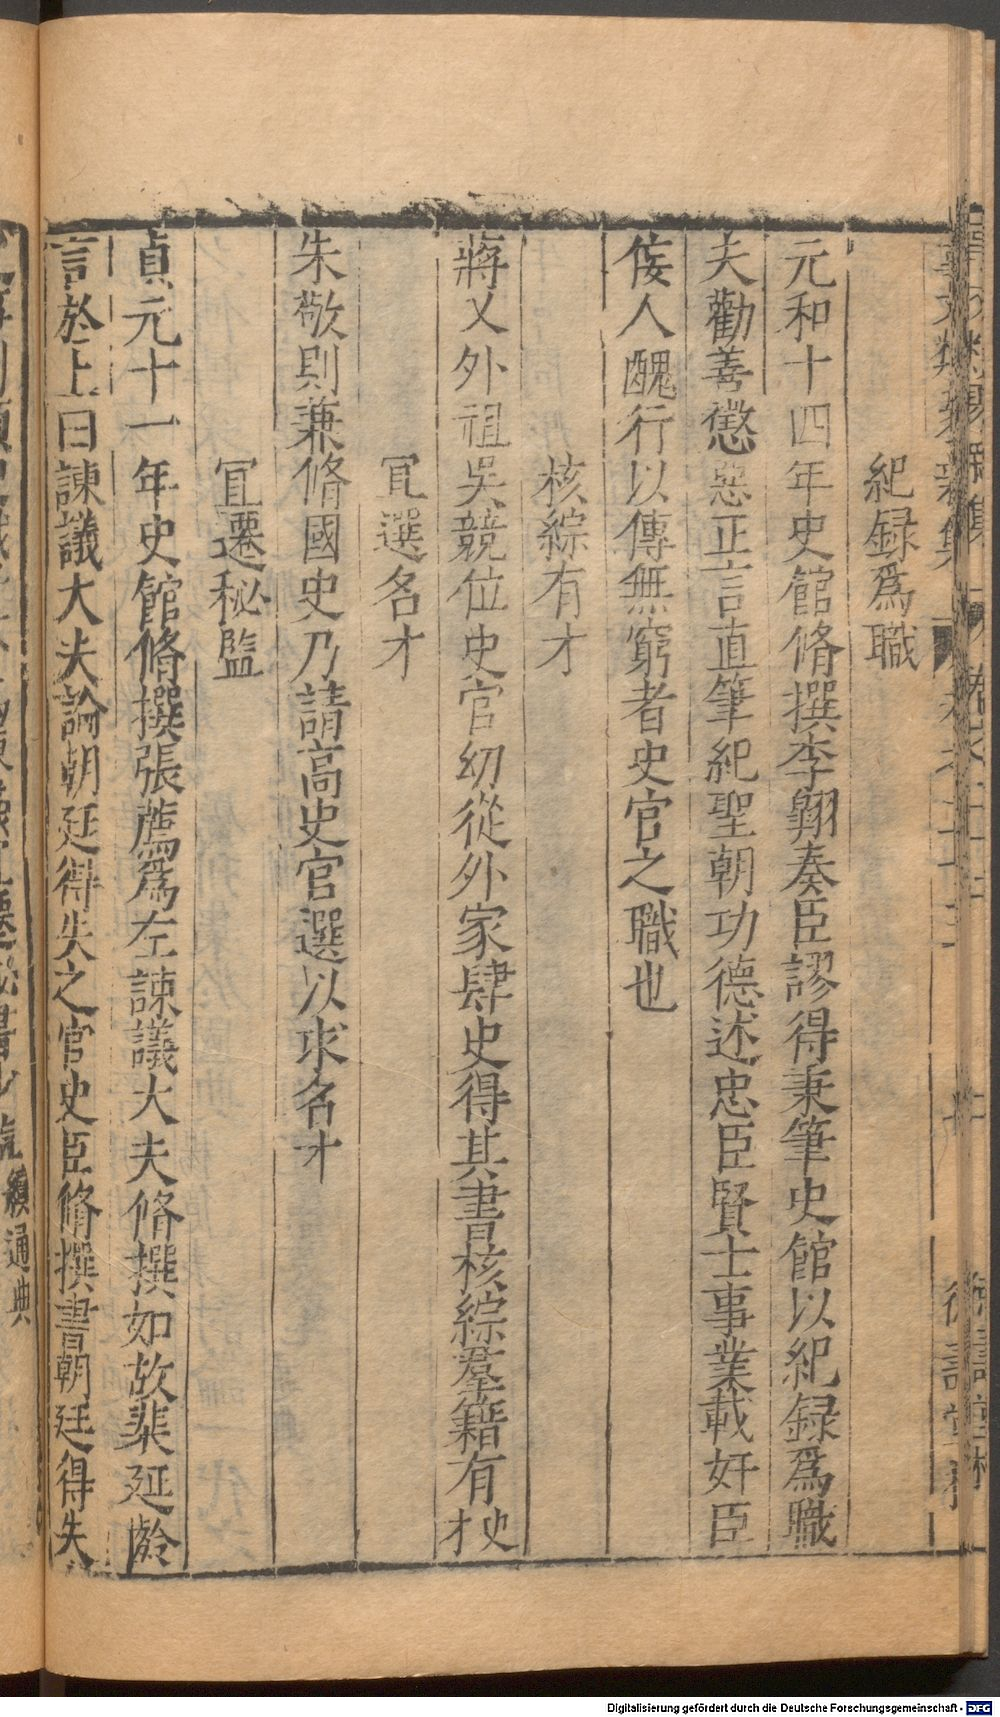 紀録爲職
元和十四年史館脩撰李翱奏臣謬得秉筆史館以紀録爲職
夫勸善懲惡正言直筆紀聖朝功德述忠臣賢士事業載奸臣
佞人醜行以傳無窮者史官之職也
核綜有才
蔣乂外祖吳競位史官幼從外家肆史得其書核綜羣籍有史才
㝡選名才
朱敬則兼脩國史乃請高史官選以求名才
冝遷秘監
貞元十一年史館脩撰張薦爲左諫議大夫脩撰如故裴延齡
言於上曰諫議大夫論朝廷得失之官史臣脩撰書朝廷得失
續通典
Digitalisierung gefördert durch die Deutsche Forschungsgemeinschaft - DFG